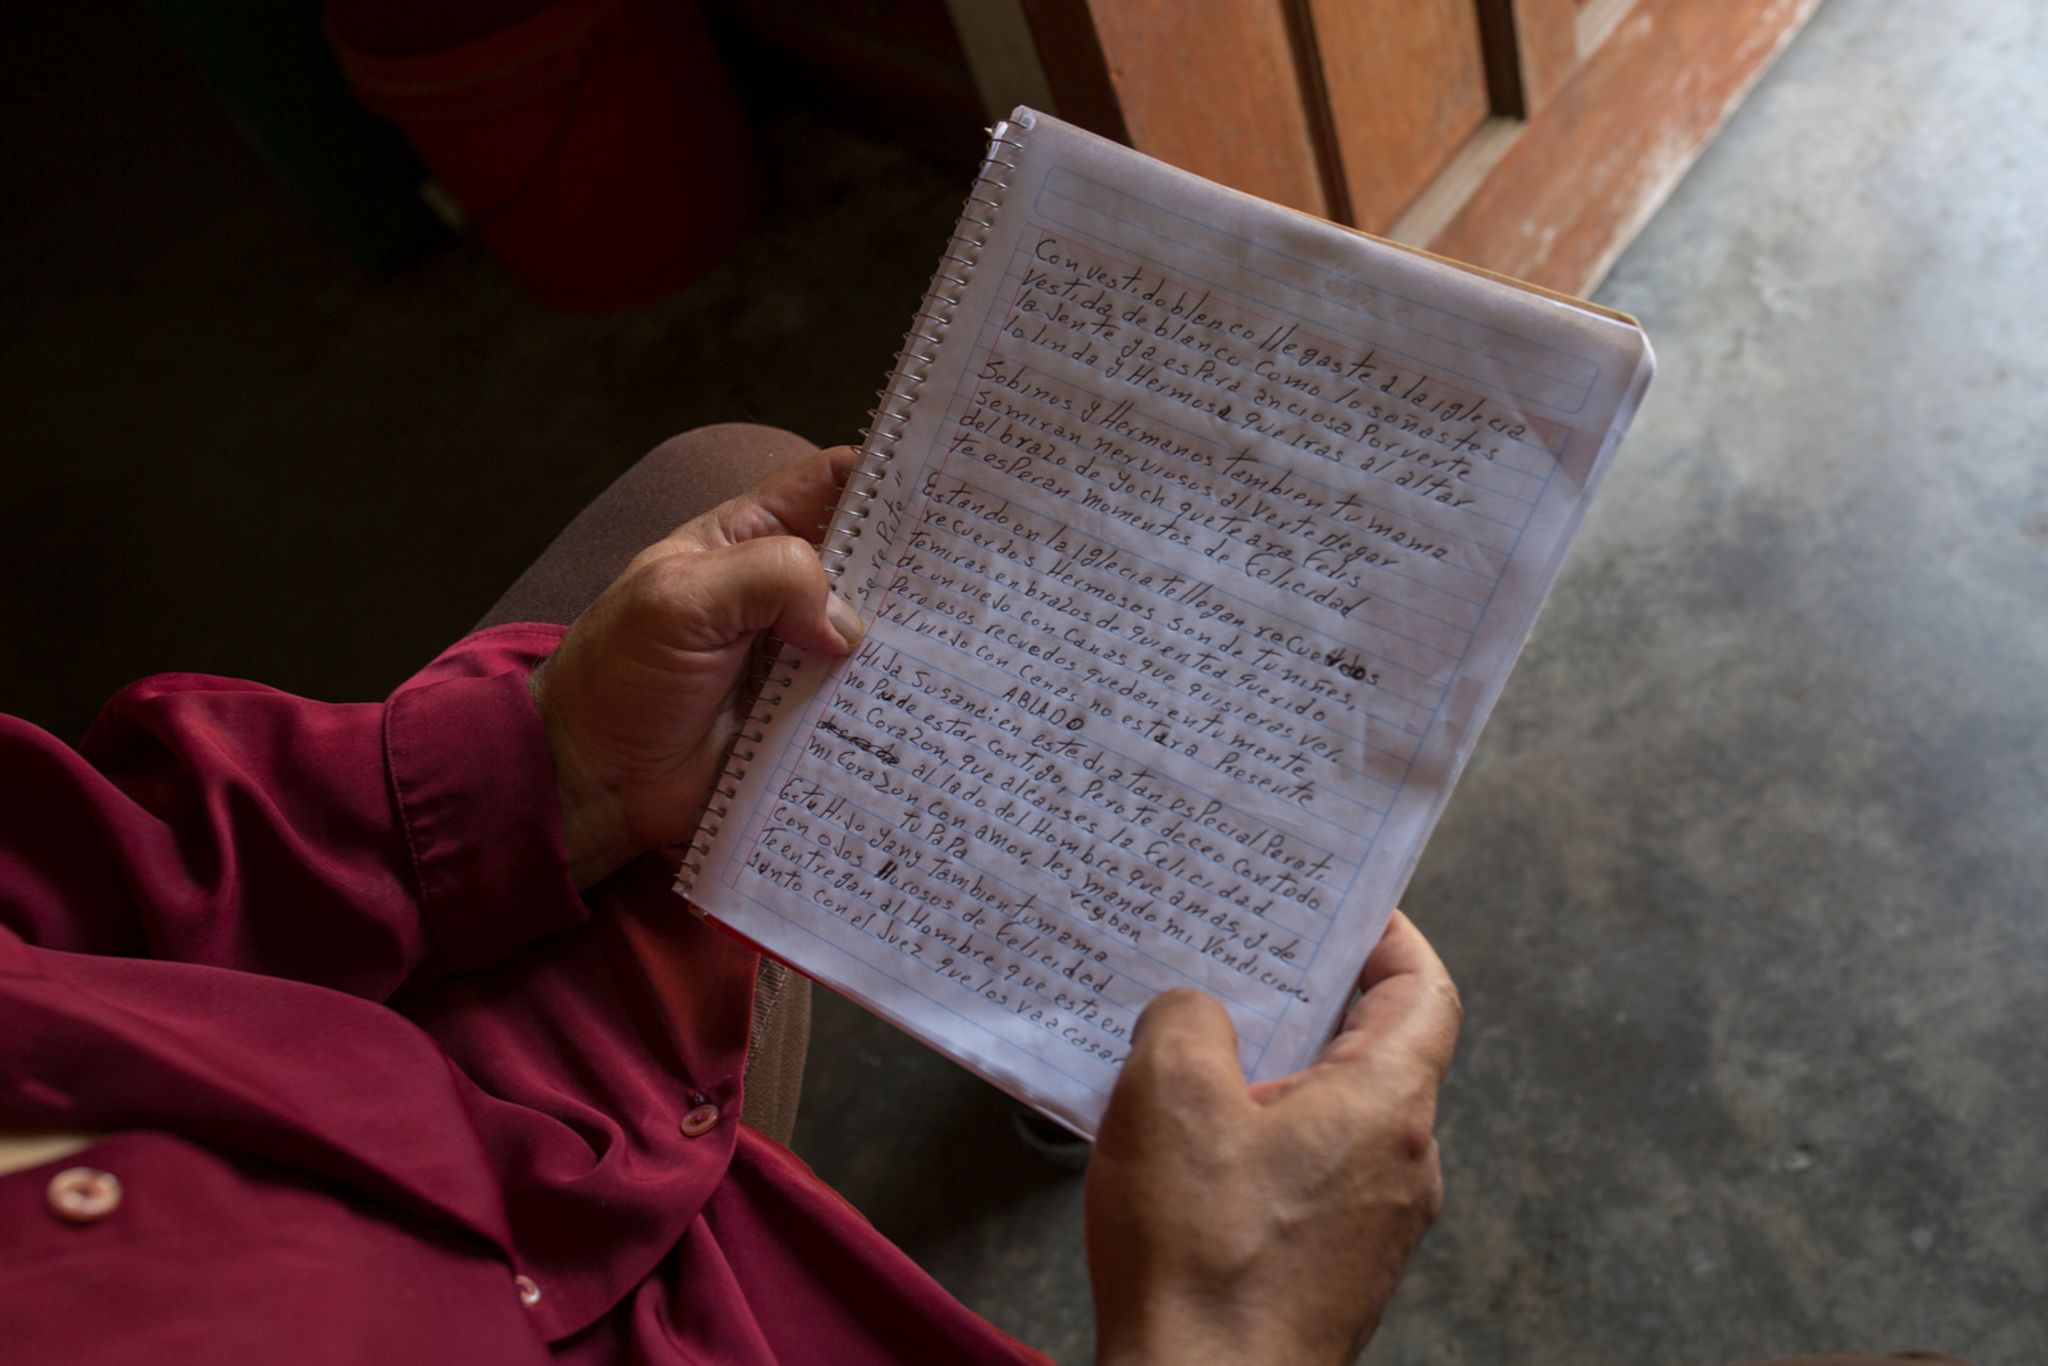 Con vestido blenco llegaste a la iglecia
vestida de blanco como lo soñastes
la Jente ya espera anciosa Por verte
lo linda y Hermosa que iras al altar
Sobinos y Hermanos tambien tu mama
semiran nerviosos al verte llegar
del brazo de yoch que te ara felis
te esPeran momentos de felicidad
Estando en la iglecia te llegan recuerdos
recuerdos Hermosos son de tu niñes,
te miras en brazos de quien tea querido
de un viejo con canas que quisieras ver.
Pero esos recuedos quedan en tu mente
y el viejo con canas no estara Presente
ABLADO
Hija Susandi en este dia tan esPecial Pero ti
no Puede estar contigo, Pero te deceo con todo
mi Corazon, que alcanses la felicidad
al lado del Hombre que amas, y de
mi Corazon con amor, les mando mi Vendicion.
tu PaPa resiben
Estu Hijo yany tambien tu mama
con ojos llorosos de felicidad
Te entregan al Hombre que esta en
junto con el Juez que los va a casar
"y se rePite"